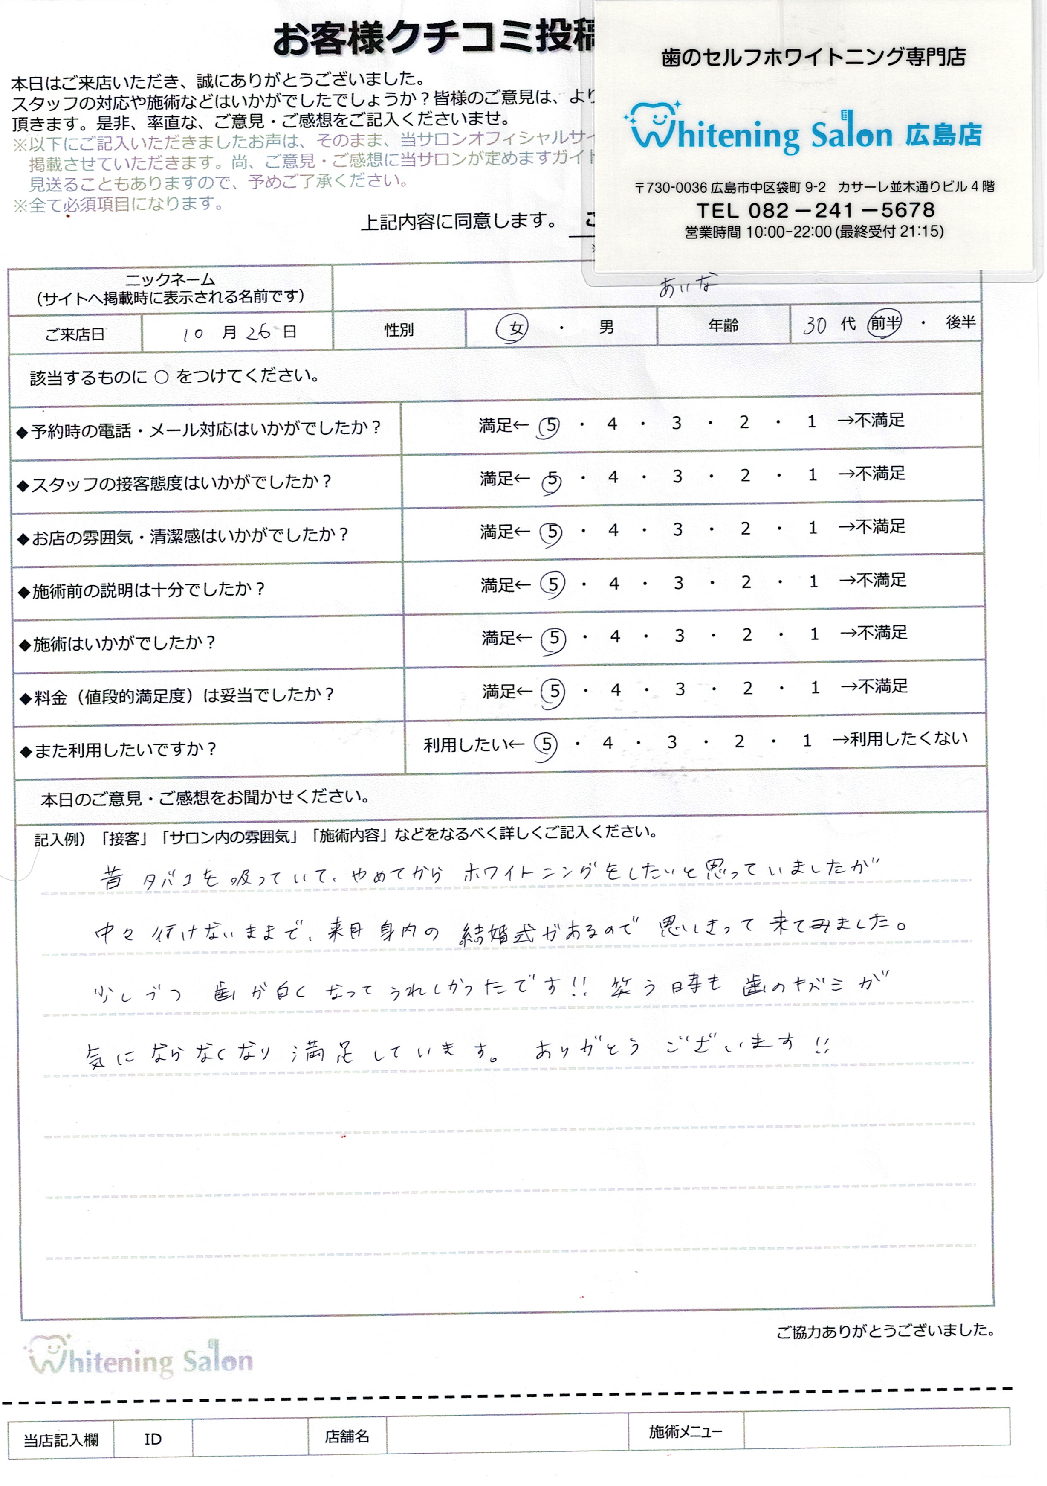 お客様クチコミ投稿
本日はご来店いただき、誠にありがとうございました。
スタッフの対応や施術などはいかがでしたでしょうか？皆様のご意見は、より
頂きます。是非、率直な、ご意見・ご感想をご記入くださいませ。
※以下にご記入いただきましたお声は、そのまま、当サロンオフィシャルサイ
掲載させていただきます。尚、ご意見・ご感想に当サロンが定めますガイド
見送ることもありますので、予めご了承ください。
※全て必須項目になります。
上記内容に同意します。
歯のセルフホワイトニング専門店
Whitening Salon 広島店
〒730-0036 広島市中区袋町 9-2 カサーレ並木通りビル 4 階
TEL 082－241－5678
営業時間 10:00-22:00 (最終受付 21:15)
ニックネーム
（サイトへ掲載時に表示される名前です）
あいな
ご来店日 10 月 26 日 性別 女 ・ 男 年齢 30 代 前半 ・ 後半
該当するものに ○ をつけてください。
◆予約時の電話・メール対応はいかがでしたか？ 満足← 5 ・ 4 ・ 3 ・ 2 ・ 1 →不満足
◆スタッフの接客態度はいかがでしたか？ 満足← 5 ・ 4 ・ 3 ・ 2 ・ 1 →不満足
◆お店の雰囲気・清潔感はいかがでしたか？ 満足← 5 ・ 4 ・ 3 ・ 2 ・ 1 →不満足
◆施術前の説明は十分でしたか？ 満足← 5 ・ 4 ・ 3 ・ 2 ・ 1 →不満足
◆施術はいかがでしたか？ 満足← 5 ・ 4 ・ 3 ・ 2 ・ 1 →不満足
◆料金（値段的満足度）は妥当でしたか？ 満足← 5 ・ 4 ・ 3 ・ 2 ・ 1 →不満足
◆また利用したいですか？ 利用したい← 5 ・ 4 ・ 3 ・ 2 ・ 1 →利用したくない
本日のご意見・ご感想をお聞かせください。
記入例）「接客」「サロン内の雰囲気」「施術内容」などをなるべく詳しくご記入ください。
昔 タバコを 吸っていて、やめてから ホワイトニングをしたいと思っていましたが
中々 行けないままで、来月 身内の 結婚式があるので 思いきって 来てみました。
少しづつ 歯が白く なって うれしかったです!! 笑う時も 歯のキバミが
気に ならなくなり 満足しています。 ありがとう ございます!!
ご協力ありがとうございました。
Whitening Salon
当店記入欄 ID 店舗名 施術メニュー